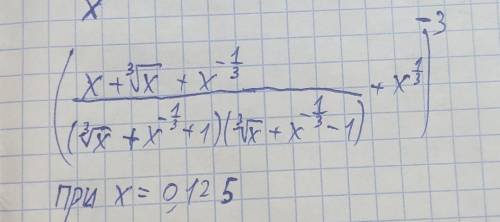 x
( (x + ∛x + x^(-1/3)) / ((∛x + x^(-1/3) + 1)(∛x + x^(-1/3) - 1)) + x^(1/3) )^(-3)
при x = 0,125